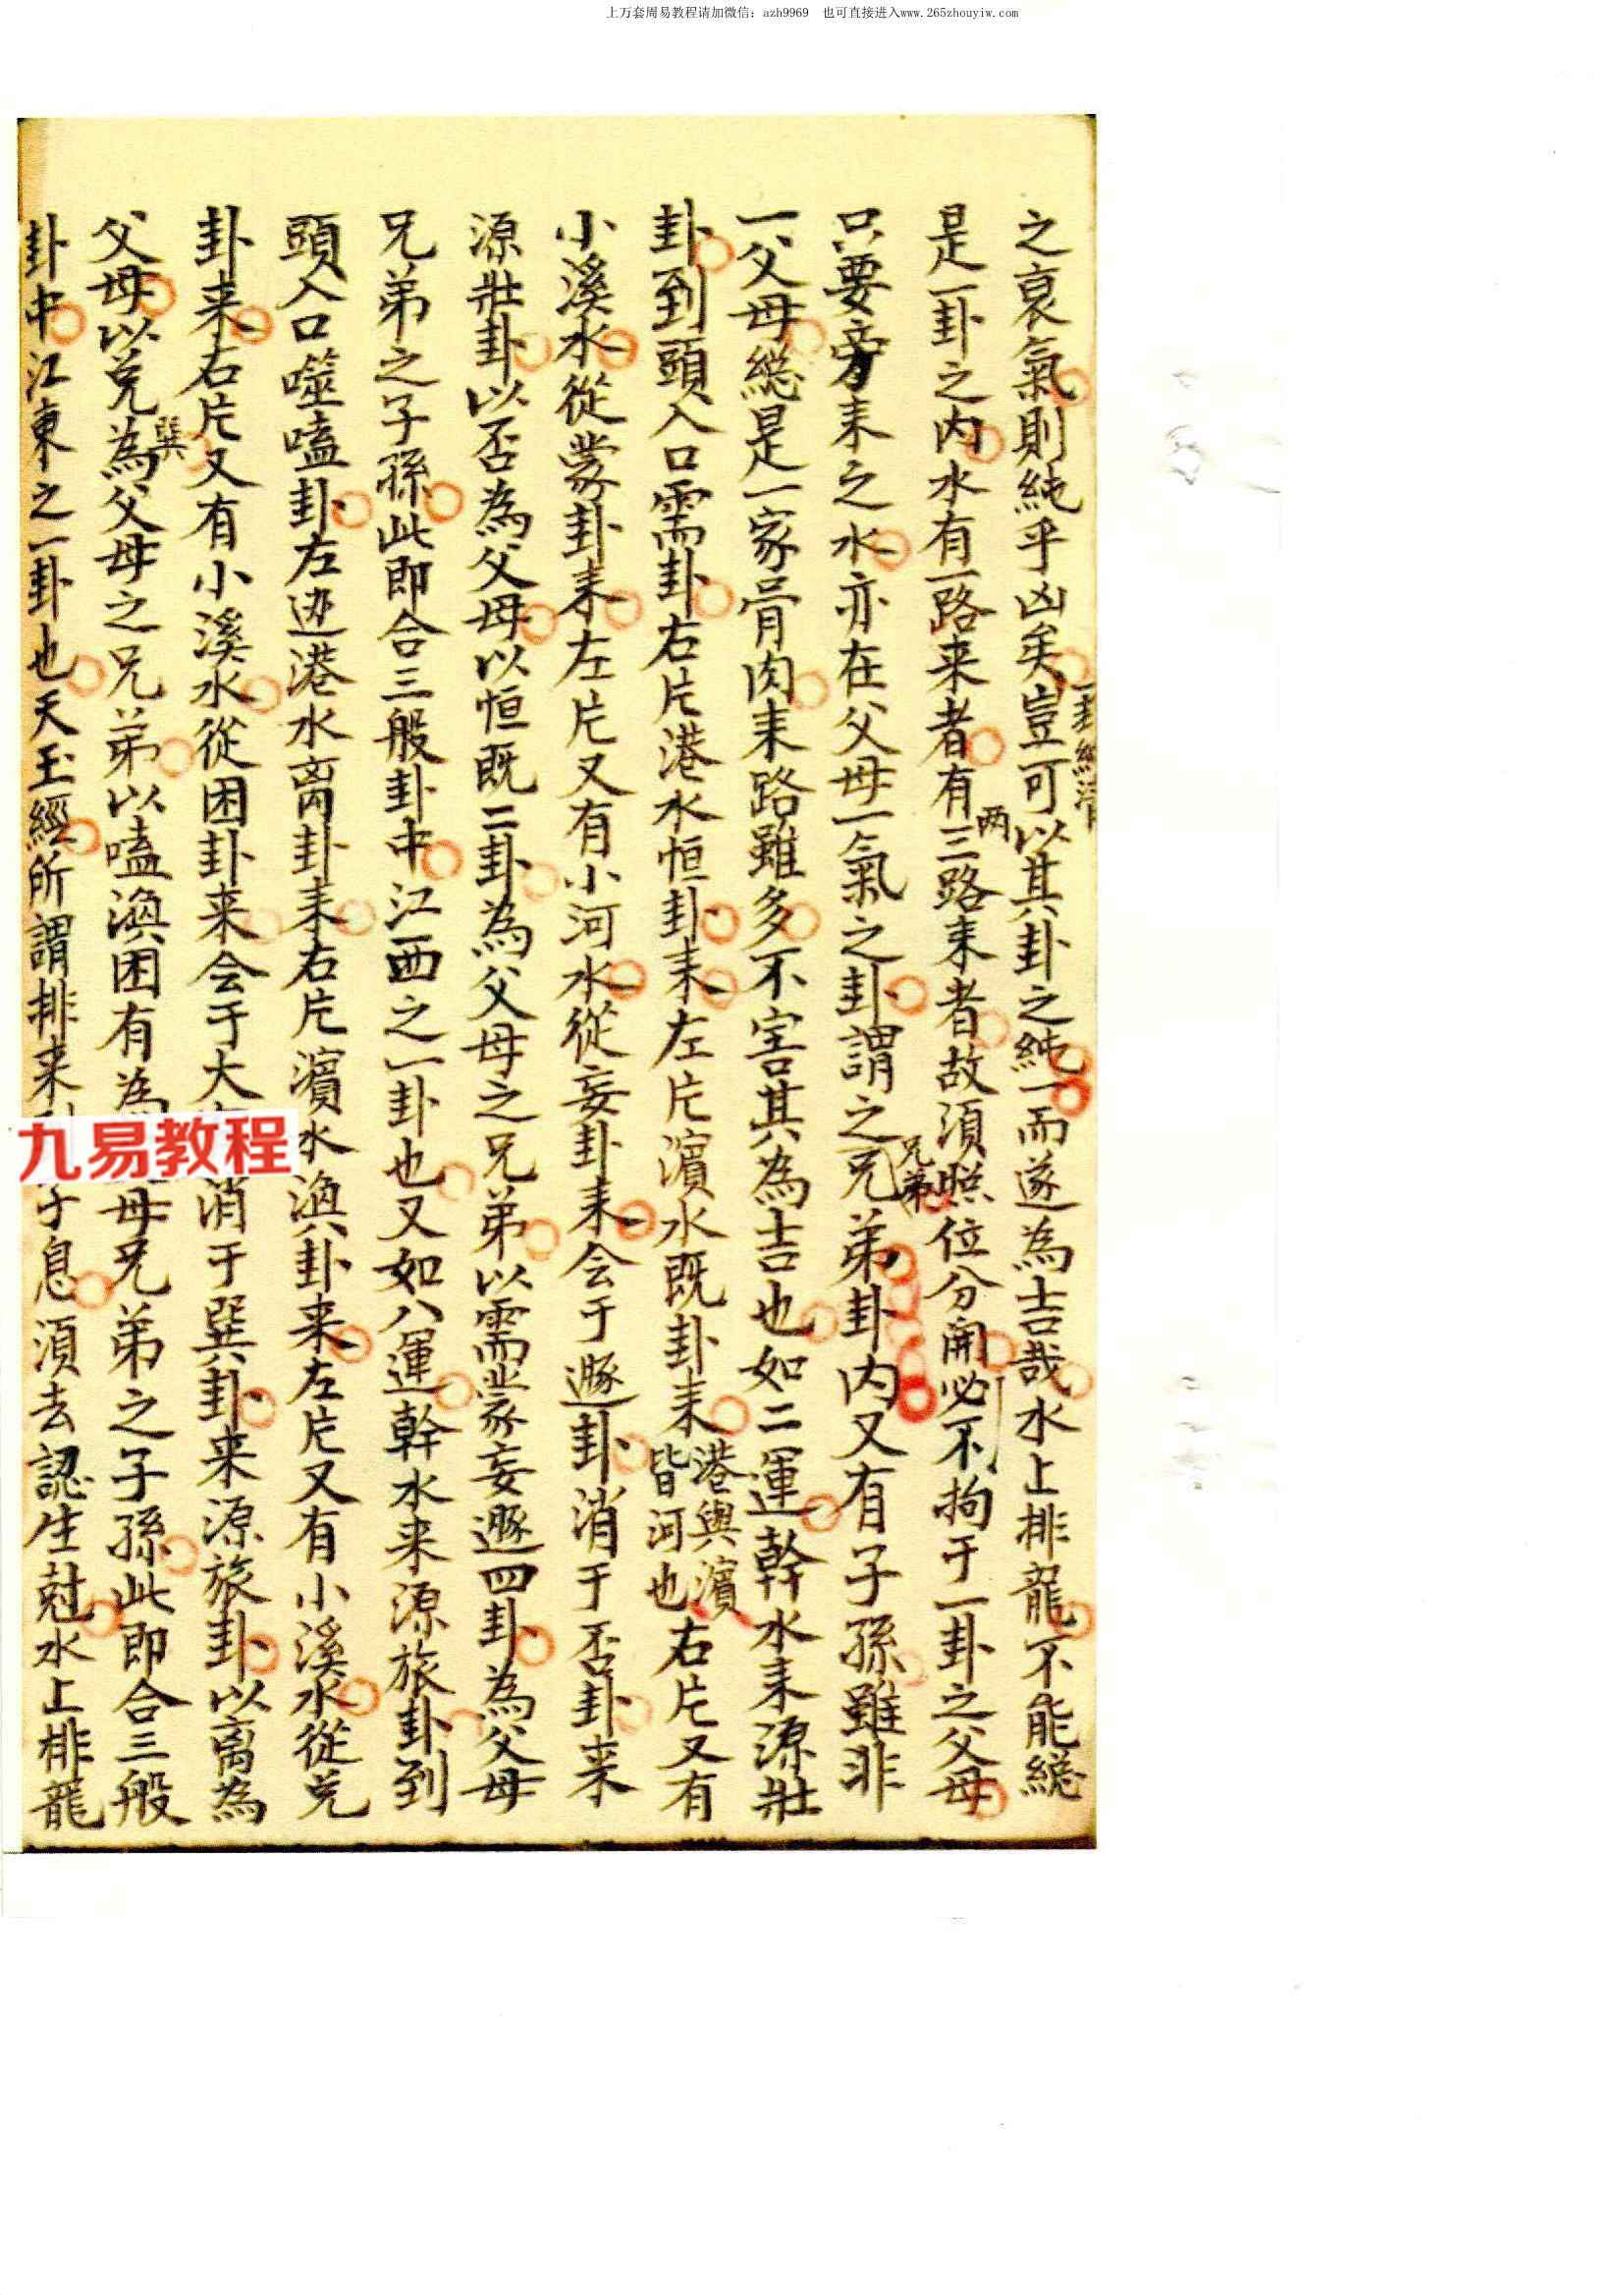 上万套周易教程请加微信：azh9969　也可直接进入www.265zhouyiw.com
之衰氣則純乎凶矣豈可以其卦之純一而遂為吉哉水上排龍不能緫
一卦純清
是一卦之內水有一路来者有三路来者故須照位分開必不拘于一卦之父母
两
只要旁来之水亦在父母一氣之卦謂之兄弟卦内又有子孫雖非
兄弟
一父母緫是一家骨肉来路雖多不害其為吉也如二運幹水来源壯
卦到頭入口需卦右片港水恒卦来左片濵水既卦来港與濵皆河也右片又有
小溪水從蒙卦来左片又有小河水從妄卦来会于遯卦消于否卦来
源壯卦以否為父母以恒既二卦為父母之兄弟以需蒙妄遯四卦為父母
兄弟之子孫此即合三般卦中江西之一卦也又如八運幹水来源旅卦到
頭入口噬嗑卦左边港水离卦来右片濵水渙卦来左片又有小溪水從兑
卦来右片又有小溪水從困卦来会于大消于巽卦来源旅卦以离為
巽
父母以兑為父母之兄弟以嗑渙困有為母兄弟之子孫此即合三般
卦中江東之一卦也天玉經所謂排来子息須去認生尅水上排龍
九易教程